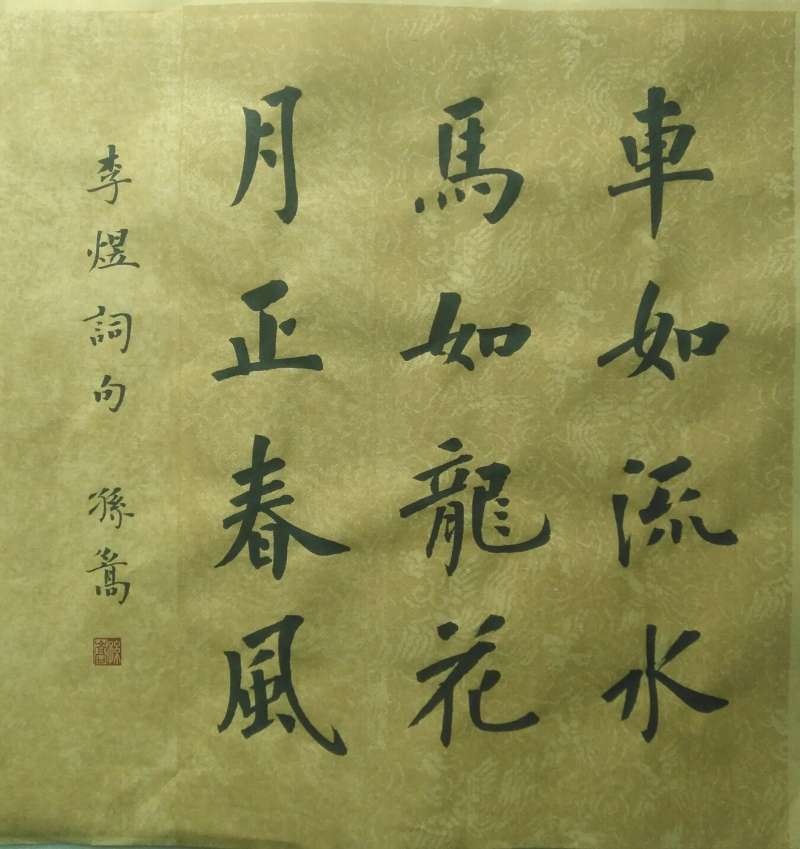 車如流水
馬如龍花
月正春風
李煜詞句 孫嵩